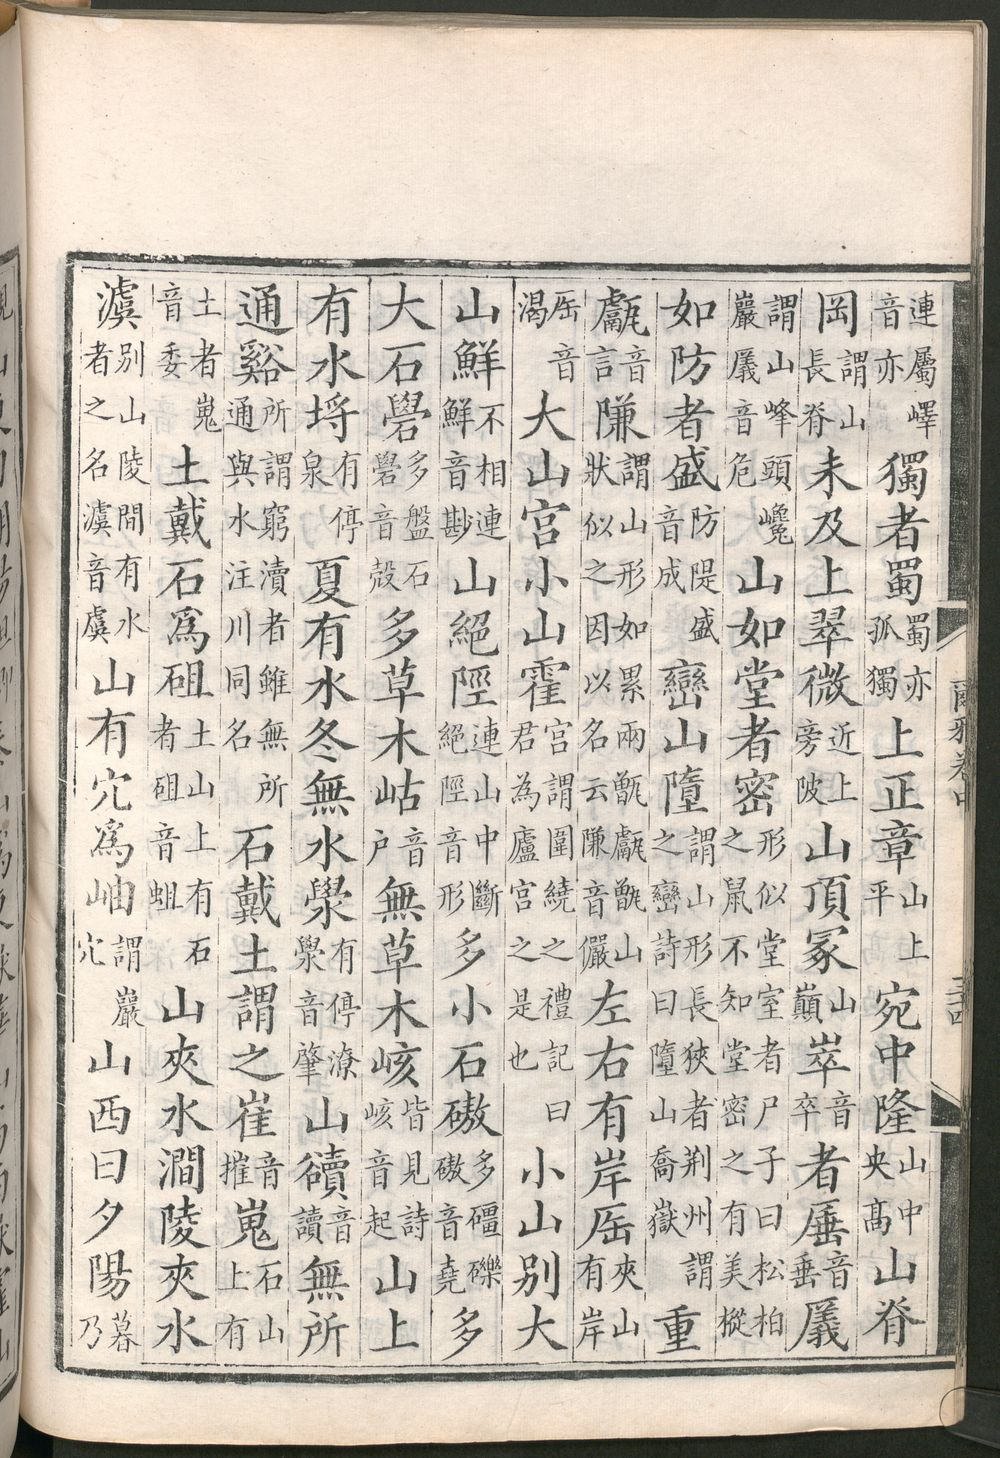 連屬嶧音亦獨者蜀蜀亦孤獨上正章山上平宛中隆山中央髙山脊
岡謂山長脊未及上翠微近上旁陂山頂冢山巔崒音卒者厜音垂㕒
謂山峰頭巉巖㕒音危山如堂者密形似堂室者尸子曰松柏之鼠不知堂密之有美樅
如防者盛防隄盛音成巒山墮謂山形長狹者荆州謂之巒詩曰墮山喬嶽重
甗音言隒謂山形如累兩甑甗甑山狀似之因以名云隒音儼左右有岸厒夾山有岸
厒音渴大山宫小山霍宫謂圍繞之禮記曰君為廬宫之是也小山别大
山鮮不相連鮮音尠山絶陘連山中斷絶陘音形多小石磝多礓礫磝音堯多
大石礐多盤石礐音殻多草木岵音户無草木峐皆見詩峐音起山上
有水埒有停泉夏有水冬無水澩有停潦澩音肇山𧮾音讀無所
通谿所謂窮瀆者雖無所通與水注川同名石戴土謂之崔音摧嵬石山上有
土者嵬音委土戴石爲砠土山上有石者砠音蛆山夾水澗陵夾水
澞别山陵間有水者之名澞音虞山有穴爲岫謂巖穴山西曰夕陽暮乃
爾雅卷中